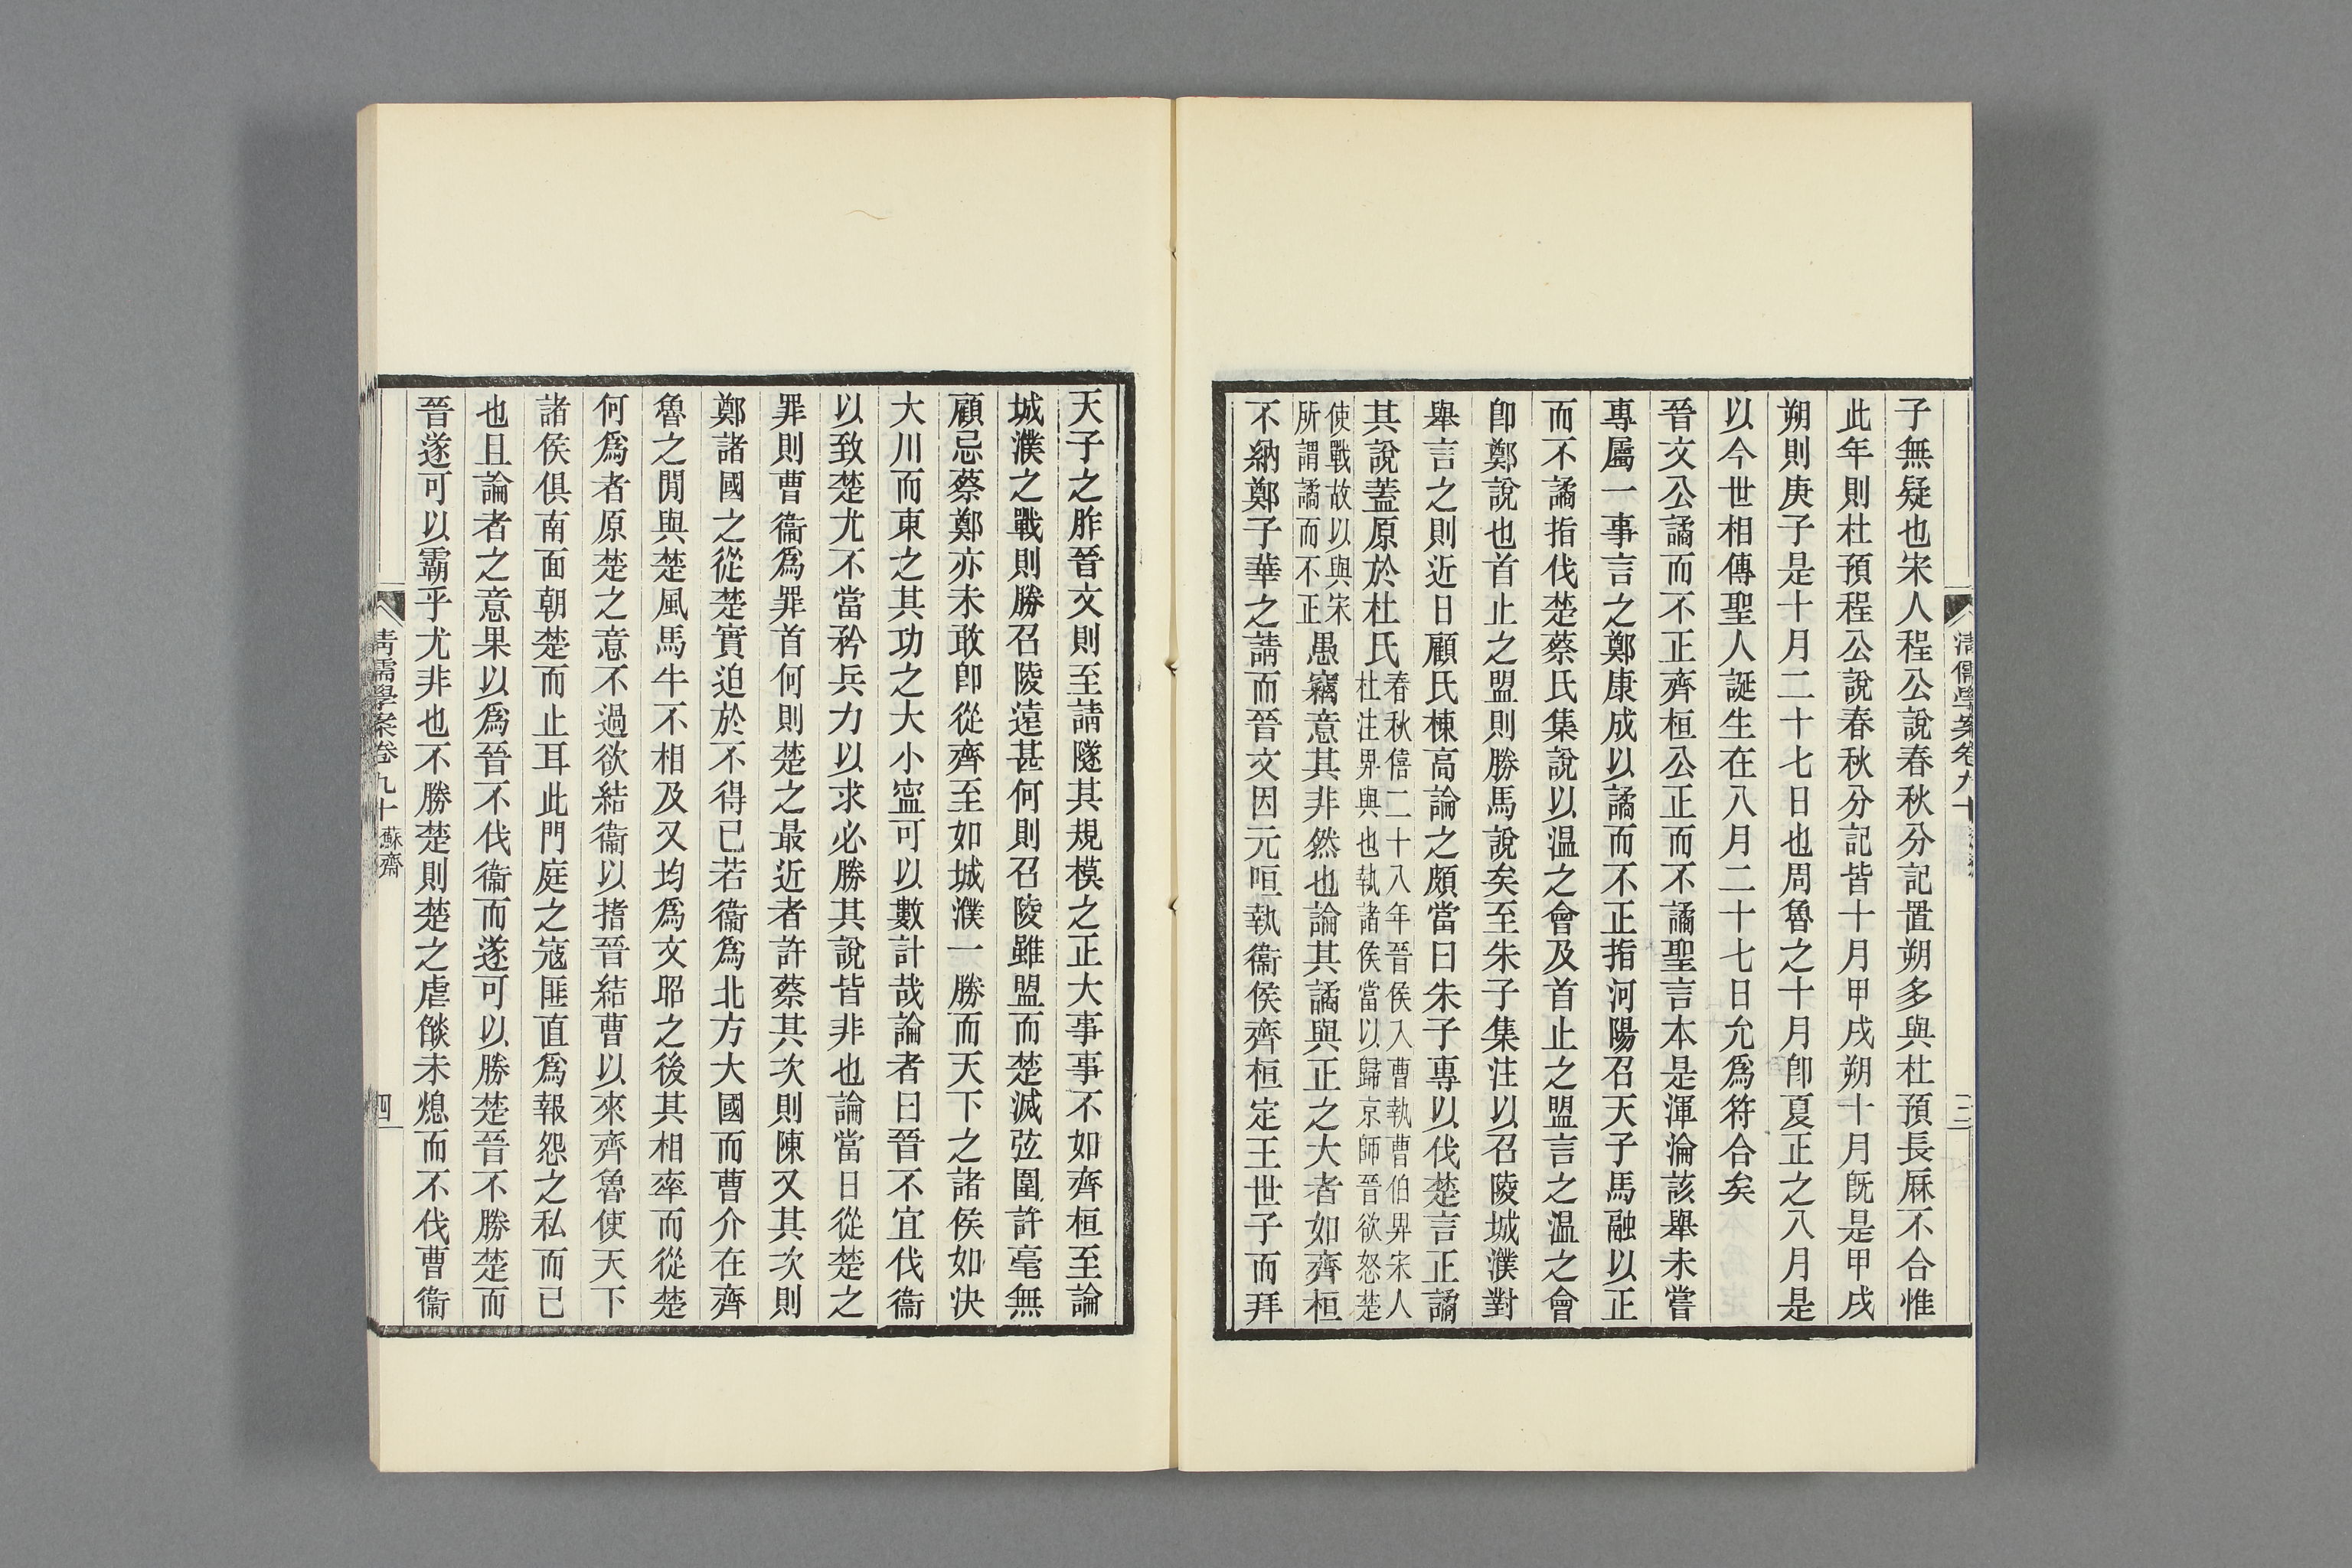 子無疑也宋人程公說春秋分記置朔多與杜預長厤不合惟
此年則杜預程公說春秋分記皆十月甲戌朔十月旣是甲戌
朔則庚子是十月二十七日也周魯之十月卽夏正之八月是
以今世相傳聖人誕生在八月二十七日允爲符合矣
晉文公譎而不正齊桓公正而不譎聖言本是渾淪該舉未嘗
專屬一事言之鄭康成以譎而不正指河陽召天子馬融以正
而不譎指伐楚蔡氏集說以温之會及首止之盟言之温之會
卽鄭說也首止之盟則勝馬說矣至朱子集注以召陵城濮對
舉言之則近日顧氏棟高論之頗當曰朱子專以伐楚言正譎
其說蓋原於杜氏春秋僖二十八年晉侯入曹執曹伯畀宋人
杜注畀與也執諸侯當以歸京師晉欲怒楚
使戰故以與宋
所謂譎而不正愚竊意其非然也論其譎與正之大者如齊桓
不納鄭子華之請而晉文因元咺執衞侯齊桓定王世子而拜
清儒學案卷九十
三
天子之胙晉文則至請隧其規模之正大事事不如齊桓至論
城濮之戰則勝召陵遠甚何則召陵雖盟而楚滅弦圍許毫無
顧忌蔡鄭亦未敢卽從齊至如城濮一勝而天下之諸侯如決
大川而東之其功之大小寍可以數計哉論者曰晉不宜伐衞
以致楚尤不當矜兵力以求必勝其說皆非也論當日從楚之
罪則曹衞爲罪首何則楚之最近者許蔡其次則陳又其次則
鄭諸國之從楚實迫於不得已若衞爲北方大國而曹介在齊
魯之閒與楚風馬牛不相及又均爲文昭之後其相率而從楚
何爲者原楚之意不過欲結衞以撎晉結曹以來齊魯使天下
諸侯俱南面朝楚而止耳此門庭之寇匪直爲報怨之私而已
也且論者之意果以爲晉不伐衞而遂可以勝楚晉不勝楚而
晉遂可以霸乎尤非也不勝楚則楚之虐燄未熄而不伐曹衞
清儒學案卷九十 蘇齋
四